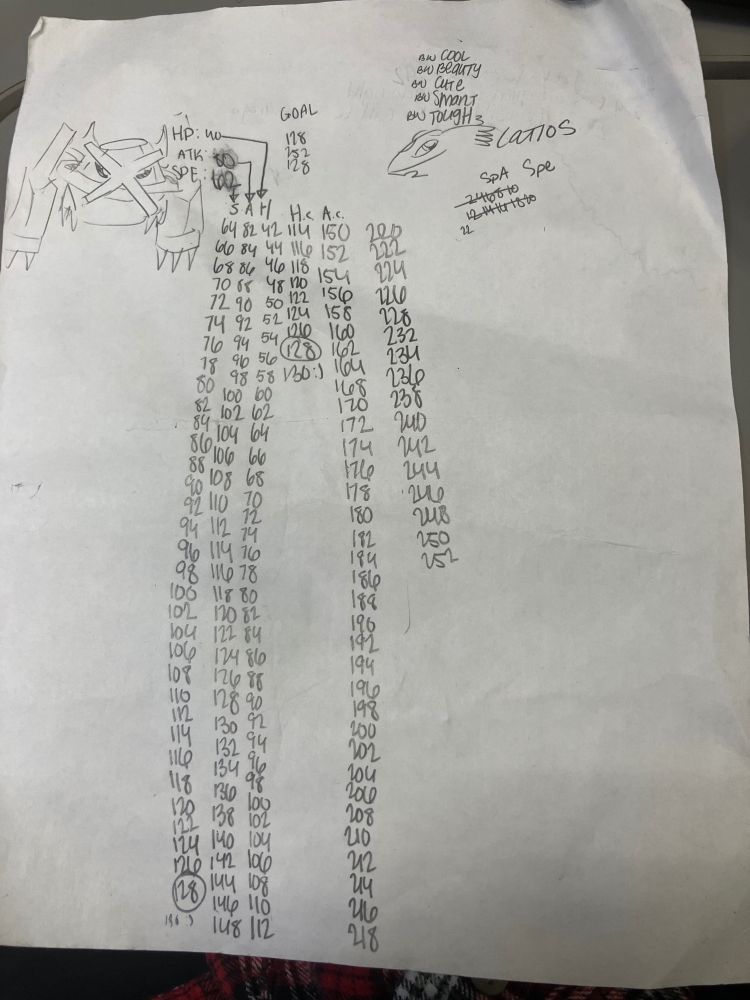 BW COOL
BW Beauty
BW Cute
BW SMART
BW TOUGH
GOAL
HP: 40
128
ATK: 80
252
SPE: 62
128
LATIOS
SpA Spe
2 4 6 8 10
12 14 16 18 20
22
S A H H.C. A.C.
64
66
68
70
72
74
76
78
80
82
84
86
88
90
92
94
96
98
100
102
104
106
108
110
112
114
116
118
120
122
124
126
128
130 :)
82
84
86
88
90
92
94
96
98
100
102
104
106
108
110
112
114
116
118
120
122
124
126
128
130
132
134
136
138
140
142
144
146
148
42
44
46
48
50
52
54
56
58
60
62
64
66
68
70
72
74
76
78
80
82
84
86
88
90
92
94
96
98
100
102
104
106
108
110
112
114
116
118
120
122
124
126
128
130 :)
150
152
154
156
158
160
162
164
168
170
172
174
176
178
180
182
184
186
188
190
192
194
196
198
200
202
204
206
208
210
212
214
216
218
220
222
224
226
228
232
234
236
238
240
242
244
246
248
250
252